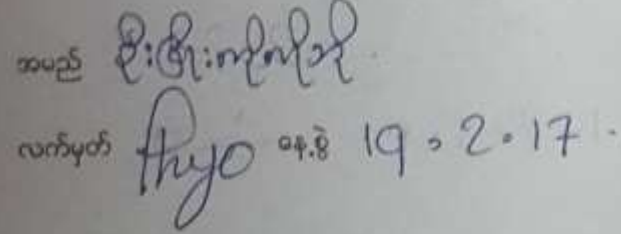 အမည် ဦးဖြိုးကိုကိုဘို
လက်မှတ် Phyo နေ့စွဲ 19.2.17.